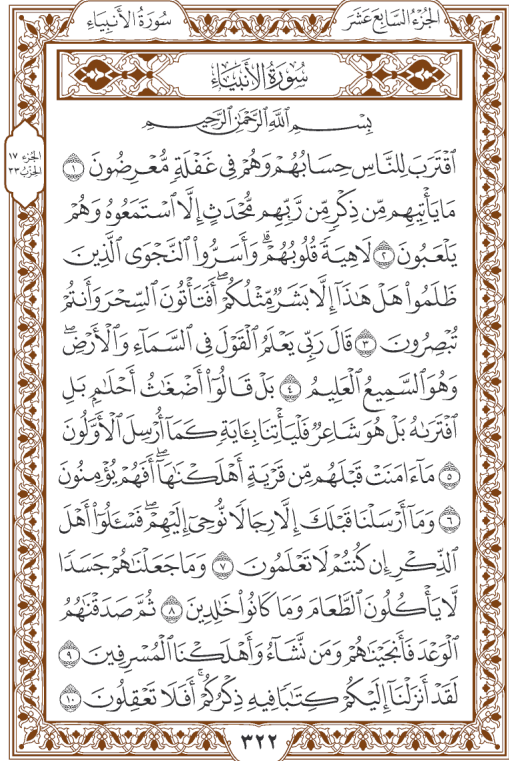 سُورَةُ الأَنبِيَاءِ
الجُزْءُ السَّابِعَ عَشَرَ
سُورَةُ الأَنبِيَاءِ
بِسْمِ ٱللَّهِ ٱلرَّحْمَٰنِ ٱلرَّحِيمِ
الجزء ١٧
الحزب ٣٣
ٱقْتَرَبَ لِلنَّاسِ حِسَابُهُمْ وَهُمْ فِى غَفْلَةٍ مُّعْرِضُونَ ١
مَا يَأْتِيهِم مِّن ذِكْرٍ مِّن رَّبِّهِم مُّحْدَثٍ إِلَّا ٱسْتَمَعُوهُ وَهُمْ
يَلْعَبُونَ ٢ لَاهِيَةً قُلُوبُهُمْ ۗ وَأَسَرُّوا۟ ٱلنَّجْوَى ٱلَّذِينَ
ظَلَمُوا۟ هَلْ هَٰذَآ إِلَّا بَشَرٌ مِّثْلُكُمْ ۖ أَفَتَأْتُونَ ٱلسِّحْرَ وَأَنتُمْ
تُبْصِرُونَ ٣ قَالَ رَبِّى يَعْلَمُ ٱلْقَوْلَ فِى ٱلسَّمَآءِ وَٱلْأَرْضِ ۖ
وَهُوَ ٱلسَّمِيعُ ٱلْعَلِيمُ ٤ بَلْ قَالُوٓا۟ أَضْغَٰثُ أَحْلَٰمٍ بَلِ
ٱفْتَرَىٰهُ بَلْ هُوَ شَاعِرٌ فَلْيَأْتِنَا بِـَٔايَةٍ كَمَآ أُرْسِلَ ٱلْأَوَّلُونَ
٥ مَآ ءَامَنَتْ قَبْلَهُم مِّن قَرْيَةٍ أَهْلَكْنَٰهَآ ۖ أَفَهُمْ يُؤْمِنُونَ
٦ وَمَآ أَرْسَلْنَا قَبْلَكَ إِلَّا رِجَالًا نُّوحِىٓ إِلَيْهِمْ ۖ فَسْـَٔلُوٓا۟ أَهْلَ
ٱلذِّكْرِ إِن كُنتُمْ لَا تَعْلَمُونَ ٧ وَمَا جَعَلْنَٰهُمْ جَسَدًا
لَّا يَأْكُلُونَ ٱلطَّعَامَ وَمَا كَانُوا۟ خَٰلِدِينَ ٨ ثُمَّ صَدَقْنَٰهُمُ
ٱلْوَعْدَ فَأَنجَيْنَٰهُمْ وَمَن نَّشَآءُ وَأَهْلَكْنَا ٱلْمُسْرِفِينَ ٩
لَقَدْ أَنزَلْنَآ إِلَيْكُمْ كِتَٰبًا فِيهِ ذِكْرُكُمْ ۖ أَفَلَا تَعْقِلُونَ ١٠
٣٢٢